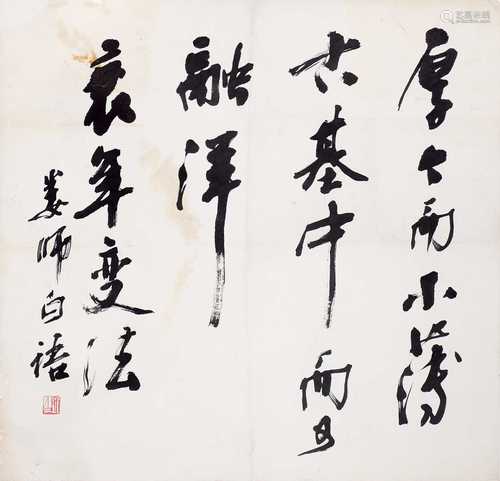 厚今而不薄
古基中而且
融洋
衰年变法
娄师白语